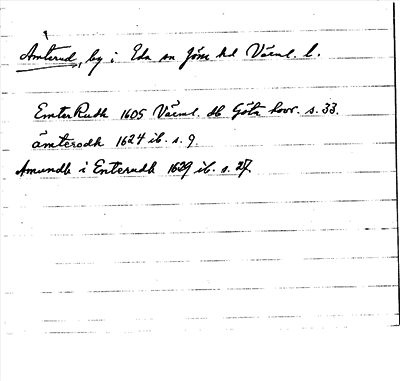 Åmterud, by i Eda sn Jösse hd Värml. l.
EmterRudh 1605 Värml. Hb Göta hovr. s. 33.
ämterodh 1624 ib. s. 9.
Amundh i Enterudh 1629 ib. s. 27.